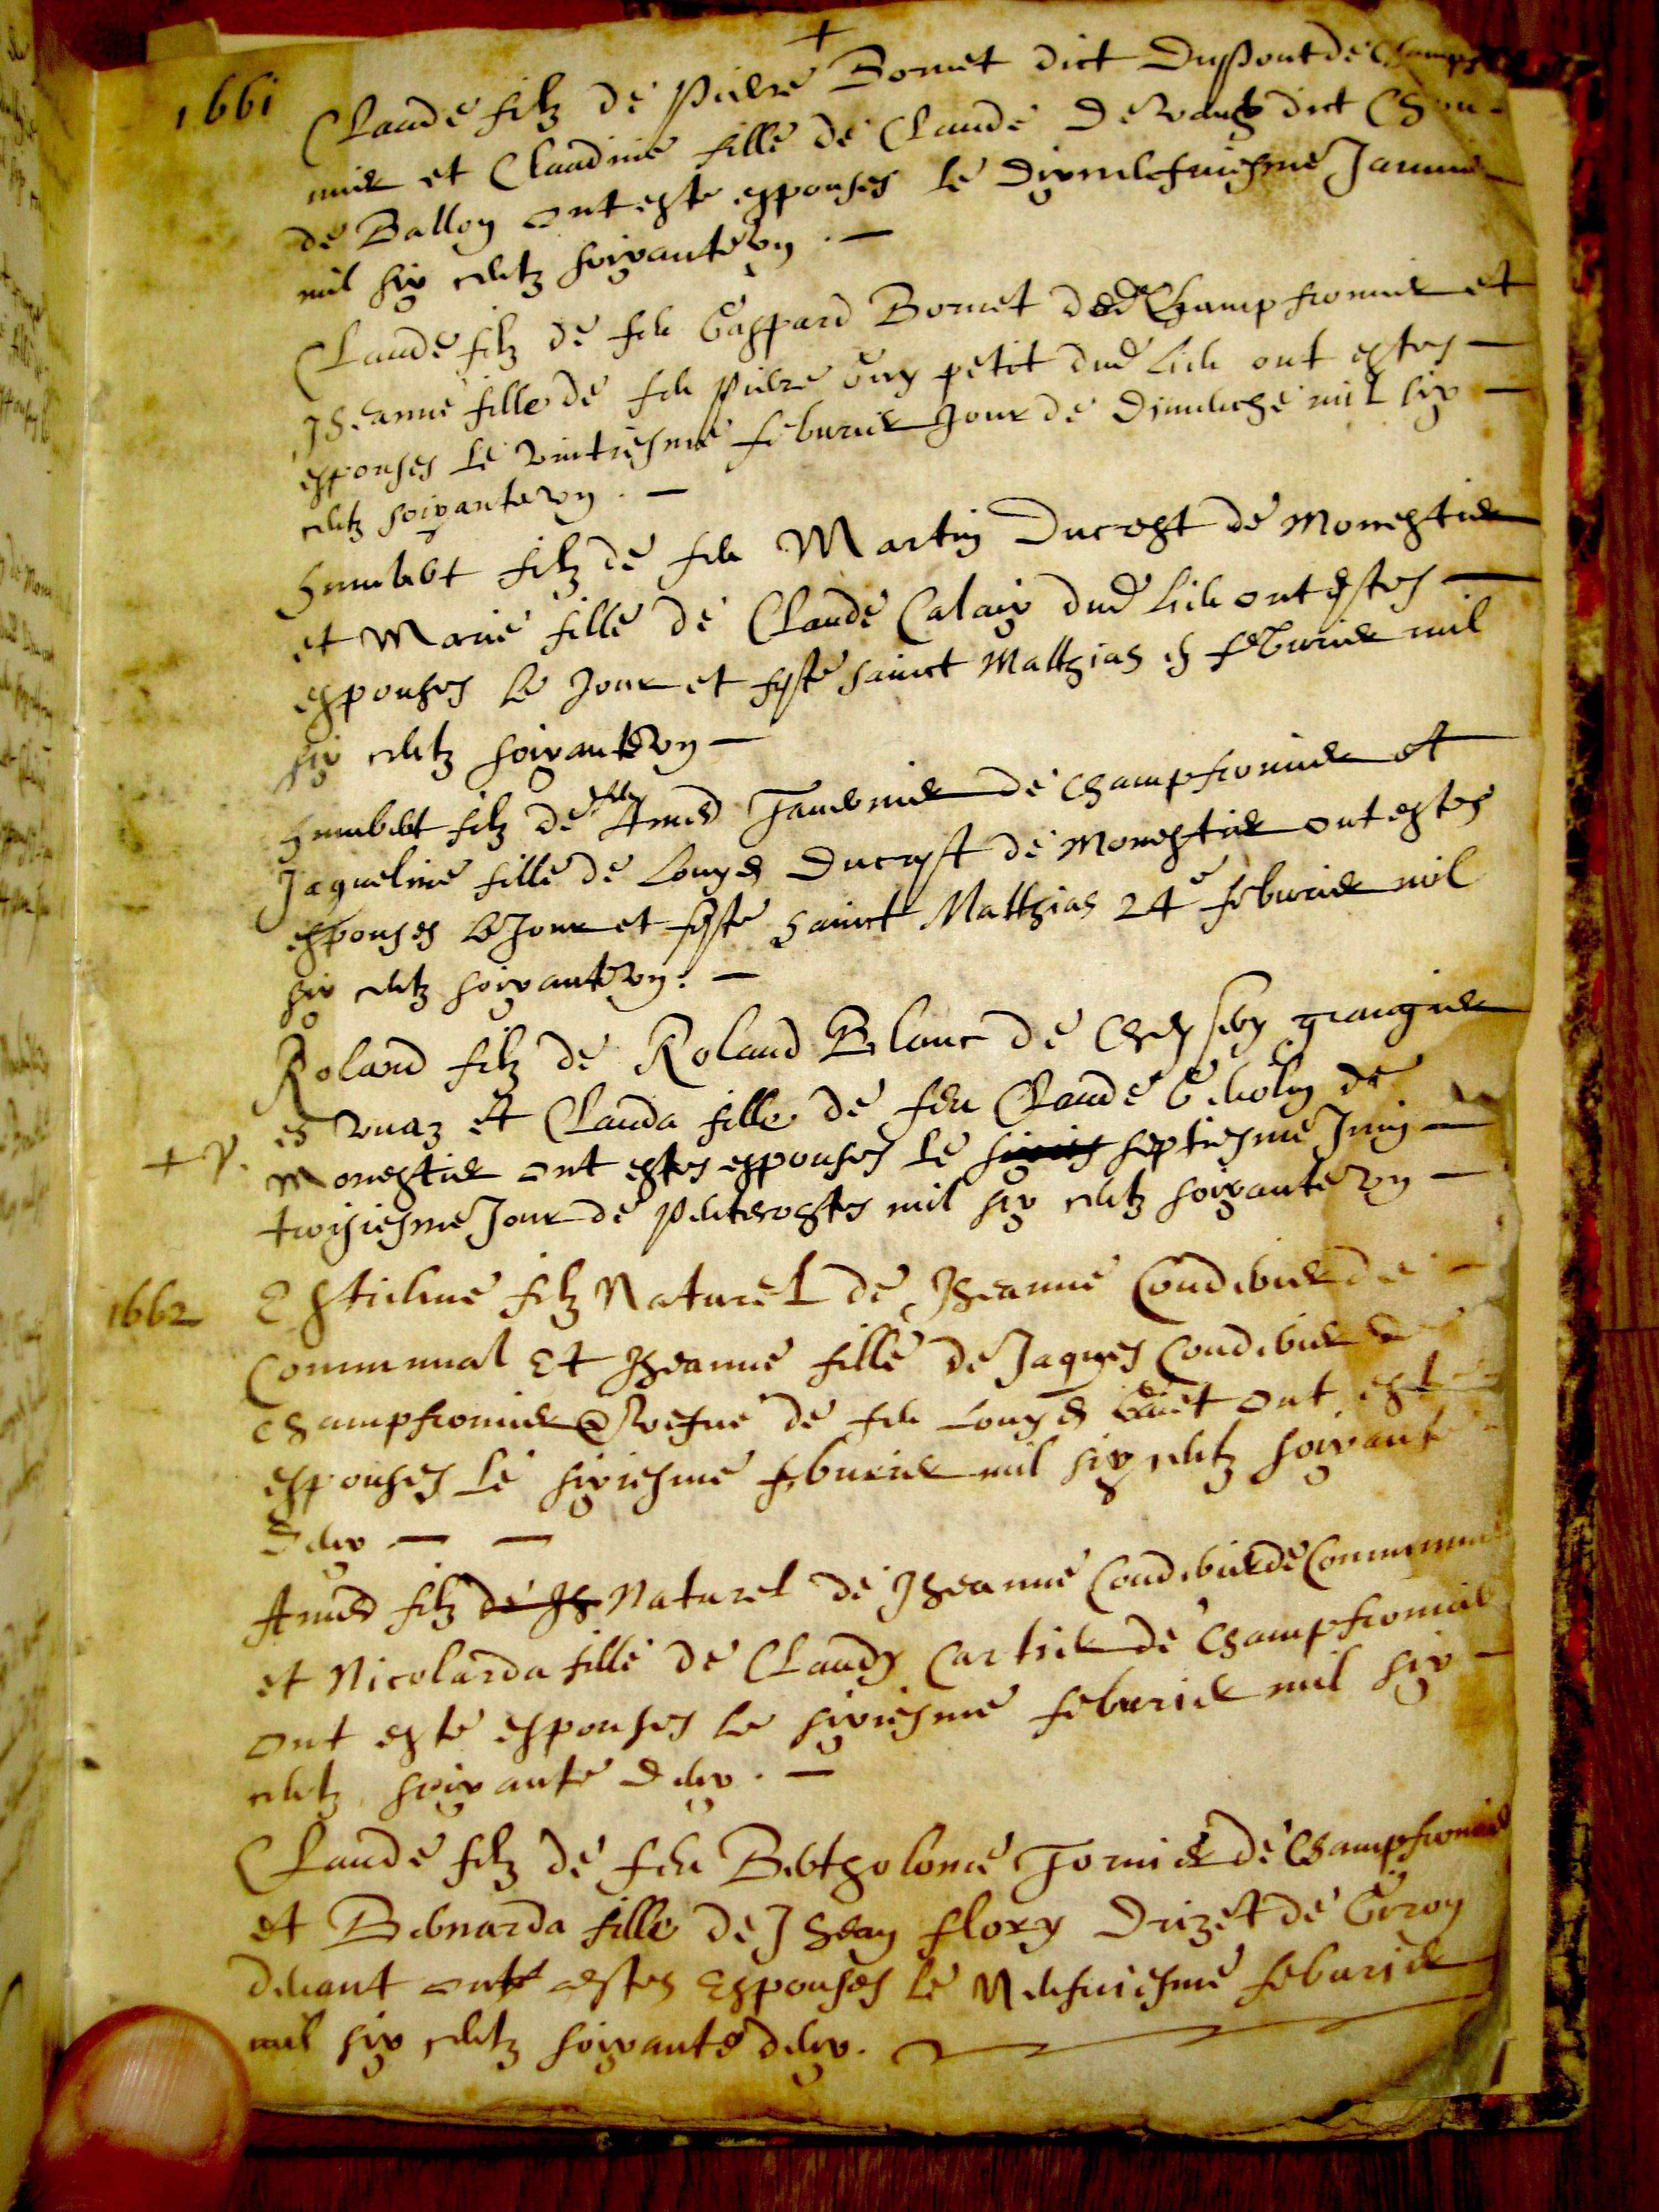 +
1661
Claude filz de Pierre Bornet dict Dupont de Champ
mier et Claudine fille de Claude Devantz dict
de Ballon ont este espouses le dixneufviesme Janvie
mil six centz soixante un . —
Claude filz de feu Gaspard Bornet dud Champfromier et
Jheanne fille de feu Pierre Guy petit dud lieu ont estes —
espouses le vintiesme febvrier Jour de dimenche mil six —
centz soixante un . —
Humbert filz de feu Martin Ducrest de Monestier
et Marie fille de Claude Calaix dud lieu ont estes —
espouses le Jour et feste sainct Matthias 
 febvrier mil
six centz soixante un —
Humbert filz de feu Amed Tavernier de Champfromier et
Jaqueline fille de Louys Ducrest de Monestier ont estes
espouses le Jour et feste sainct Matthias 24e febvrier mil
six centz soixante un. —
Roland filz de Roland Blanc de grangier
es vuaz et Clauda fille de feu Claude de
+ Monestier ont estes espouses le septiesme Juin —
troisiesme Jour de Pentecostes mil six centz soixante un —
1662
Estienne filz Naturel de Jheanne Coudurier de —
Communal Et Jheanne fille de Jaques Coudurier de
Champfromier vefue de feu Louys ont este
espouses le sixiesme febvrier mil six centz soixante
deux — —
Amed filz de Jh Naturel de Jheanne Coudurier de Communa
et Nicolarda fille de Claudy Cartier de Champfromier
ont este espouses le sixiesme febvrier mil six —
centz soixante deux . —
Claude filz de feu Bertholome Tornier de Champfromier
et Bernarda fille de Jhean Flory Druzet de Giron
devant ont estes Espouses le Neufviesme febvrier
mil six centz soixante deux .